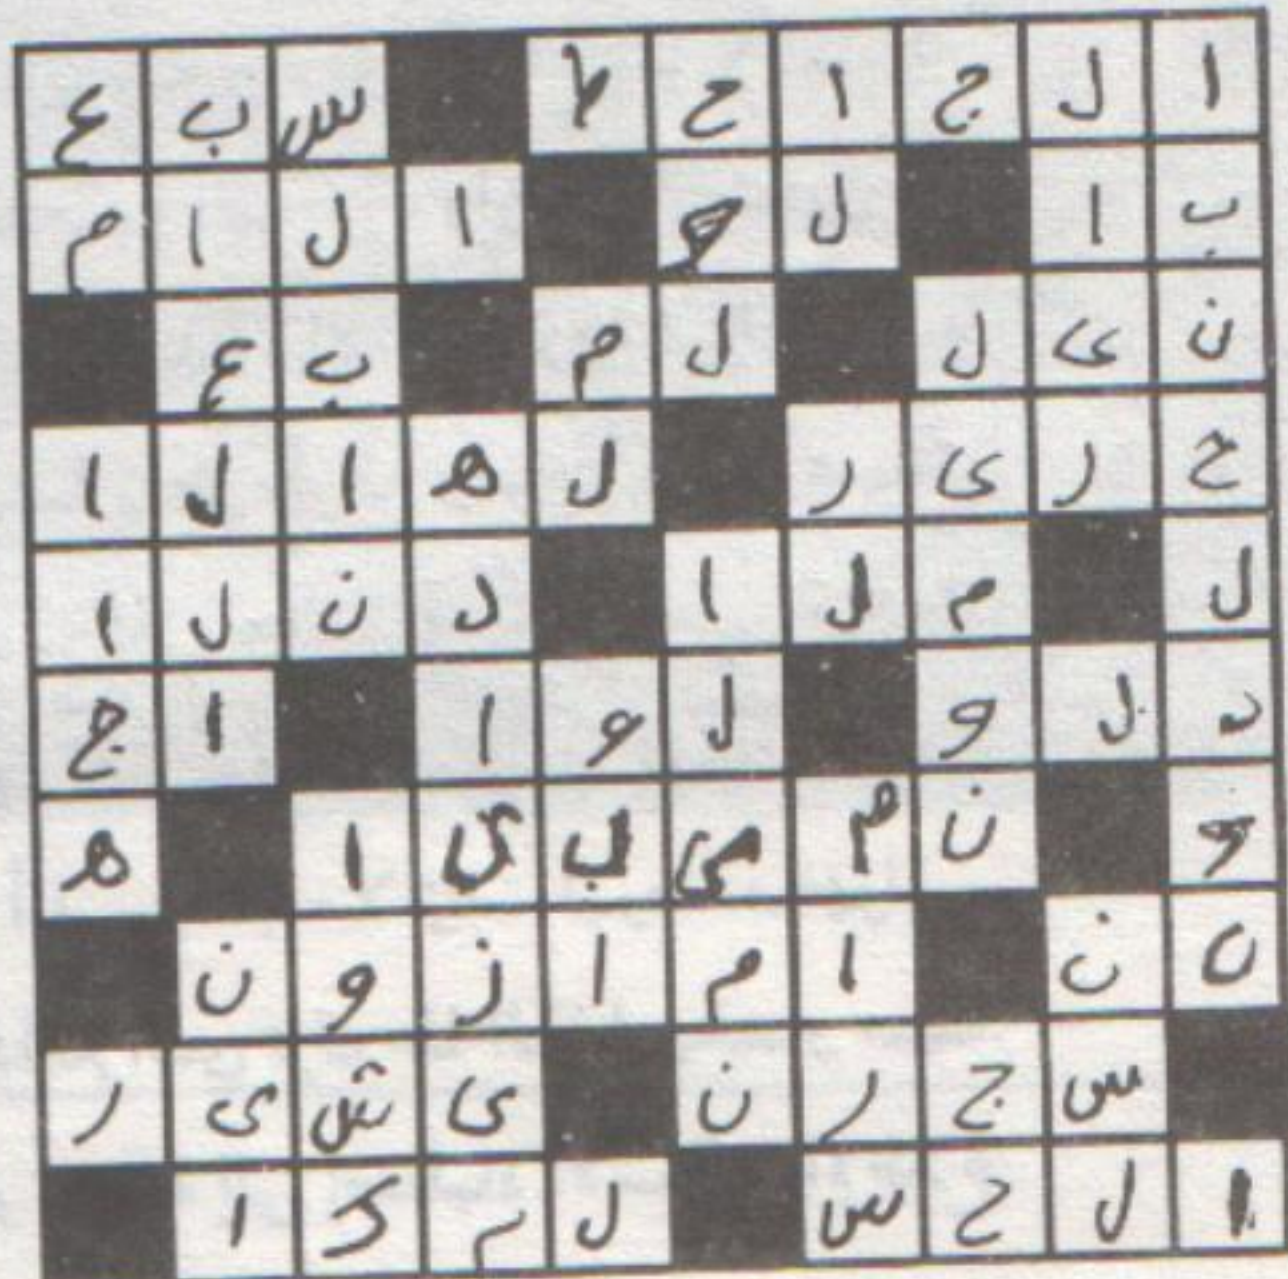 ا ل ج ا ح ظ س ب ع
ب ا ل و ا ل ا م
ن ى ل ل م ب ع
ح ر ى ر ل ه ا ل ا
ل م ل ا د ن ل ا
د ل و ل و ا ا ج
و ن م ى ب ى ا ه
ن ن ا م ا ز و ن
س ج ر ن ى ش ى ر
ا ل ح س ل م ك ا